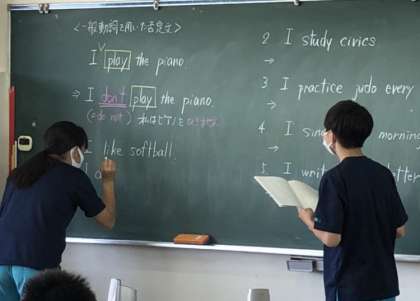 <一般動詞を用いた否定文>
I play the piano.
V
⇒ I don't play the piano.
(=do not) 私はピアノを
like softball
2 I study civics
→
3 I practice judo every
→
4 I sin morning
5 I wri letter